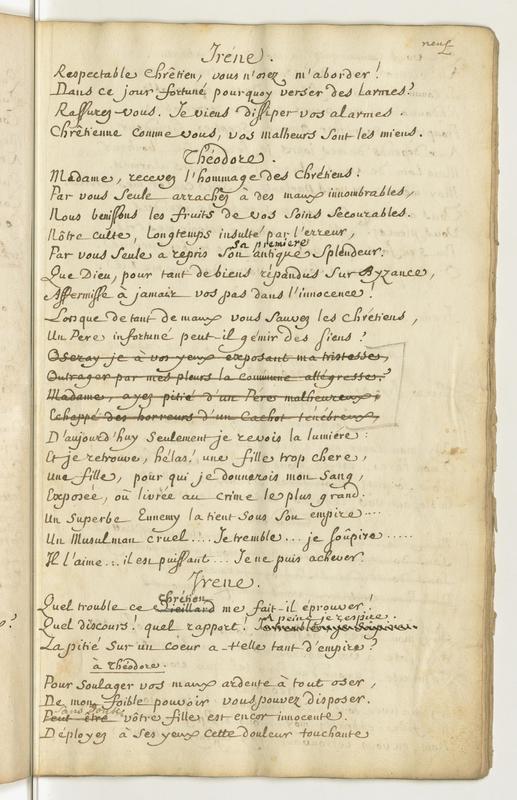 neuf
Iréne.
Respectable Chrêtien, vous n'osez m'aborder!
Dans ce jour fortuné pourquoy verser des larmes?
Rassurez-vous. Je viens dissiper vos alarmes.
Chrêtienne comme vous, vos malheurs sont les miens.
Théodore.
Madame, recevez l'hommage des Chrétiens.
Par vous seule arrachez à des maux innombrables,
Nous benissons les fruits de vos soins secourables.
Nôtre culte, longtemps insulté par l'erreur,
sa premiere
Par vous seule a repris son antique splendeur.
Que Dieu, pour tant de biens répandus sur Byzance,
Affermisse à jamais vos pas dans l'innocence!
Lorsque de tant de maux vous sauvez les chrétiens,
Un Pere infortuné peut-il gémir des siens?
Oseray je à vos yeux exposant ma tristesse,
Outrager par mes pleurs la commune allégresse?
Madame, ayez pitié d'un Pere malheureux,
Echappé des horreurs d'un Cachot ténébreux,
D'aujourd'huy seulement je revois la lumiére:
Et je retrouve, hélas! une fille trop chere,
Une fille, pour qui je donnerois mon sang,
Exposée, où livrée au crime le plus grand.
Un superbe Ennemy la tient sous son empire....
Un Musulman cruel.... Je tremble... je soûpire.....
Il l'aime... il est puissant... Je ne puis achever.
Irene.
Chrêtien
Quel trouble ce Vieillard me fait-il éprouver!
A peine je respire.
Quel discours! quel rapport!
La pitié sur un coeur a-t'elle tant d'empire?
à Théodore.
Pour soulager vos maux ardente à tout oser,
De mon foible pouvoir vous pouvez disposer.
sans doute
Peut être vôtre fille est encor innocente.
Déployez à ses yeux cette douleur touchante